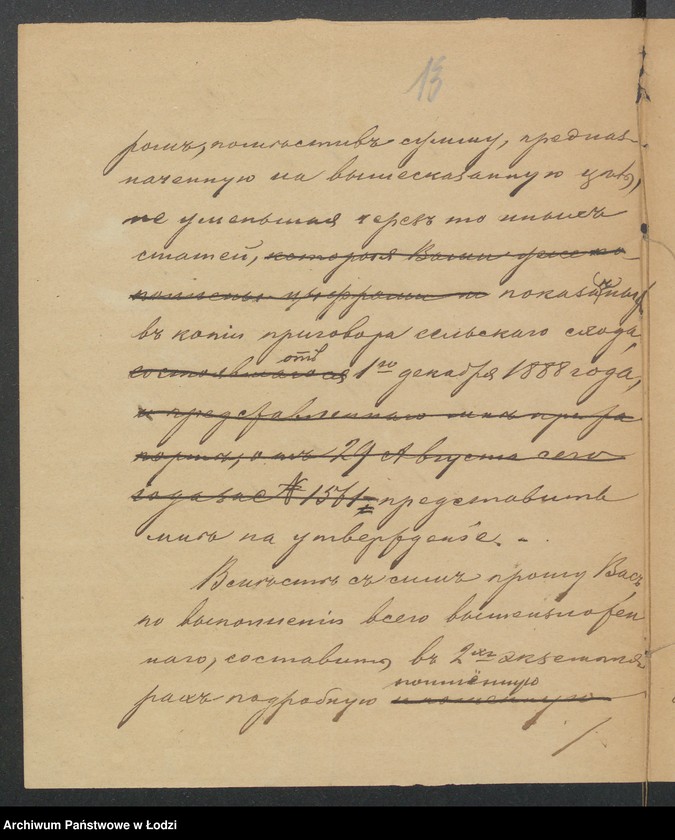 13
ромъ, помѣстивъ сумму, предназ-
наченную на вышесказанную цѣль,
не уменьшая черезъ то иныхъ
статей, которыя Вами уже по-
показаныхъ
въ копіи приговора сельскаго схода,
состоявшагося отъ 1го декабря 1888 года,
и представленнаго мнѣ при ра
портѣ, отъ 29 Августа сего
года за № 1561 представить
мнѣ на утвержденіе. -
Вмѣстѣ съ симъ прошу Васъ
по выполненіи всего вышеизложен
наго, составить въ 2хъ экземпля
рахъ подробную
Archiwum Państwowe w Łodzi